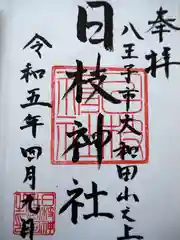 奉拝
八王子市大和田小之上
日枝神社
令和五年四月九日